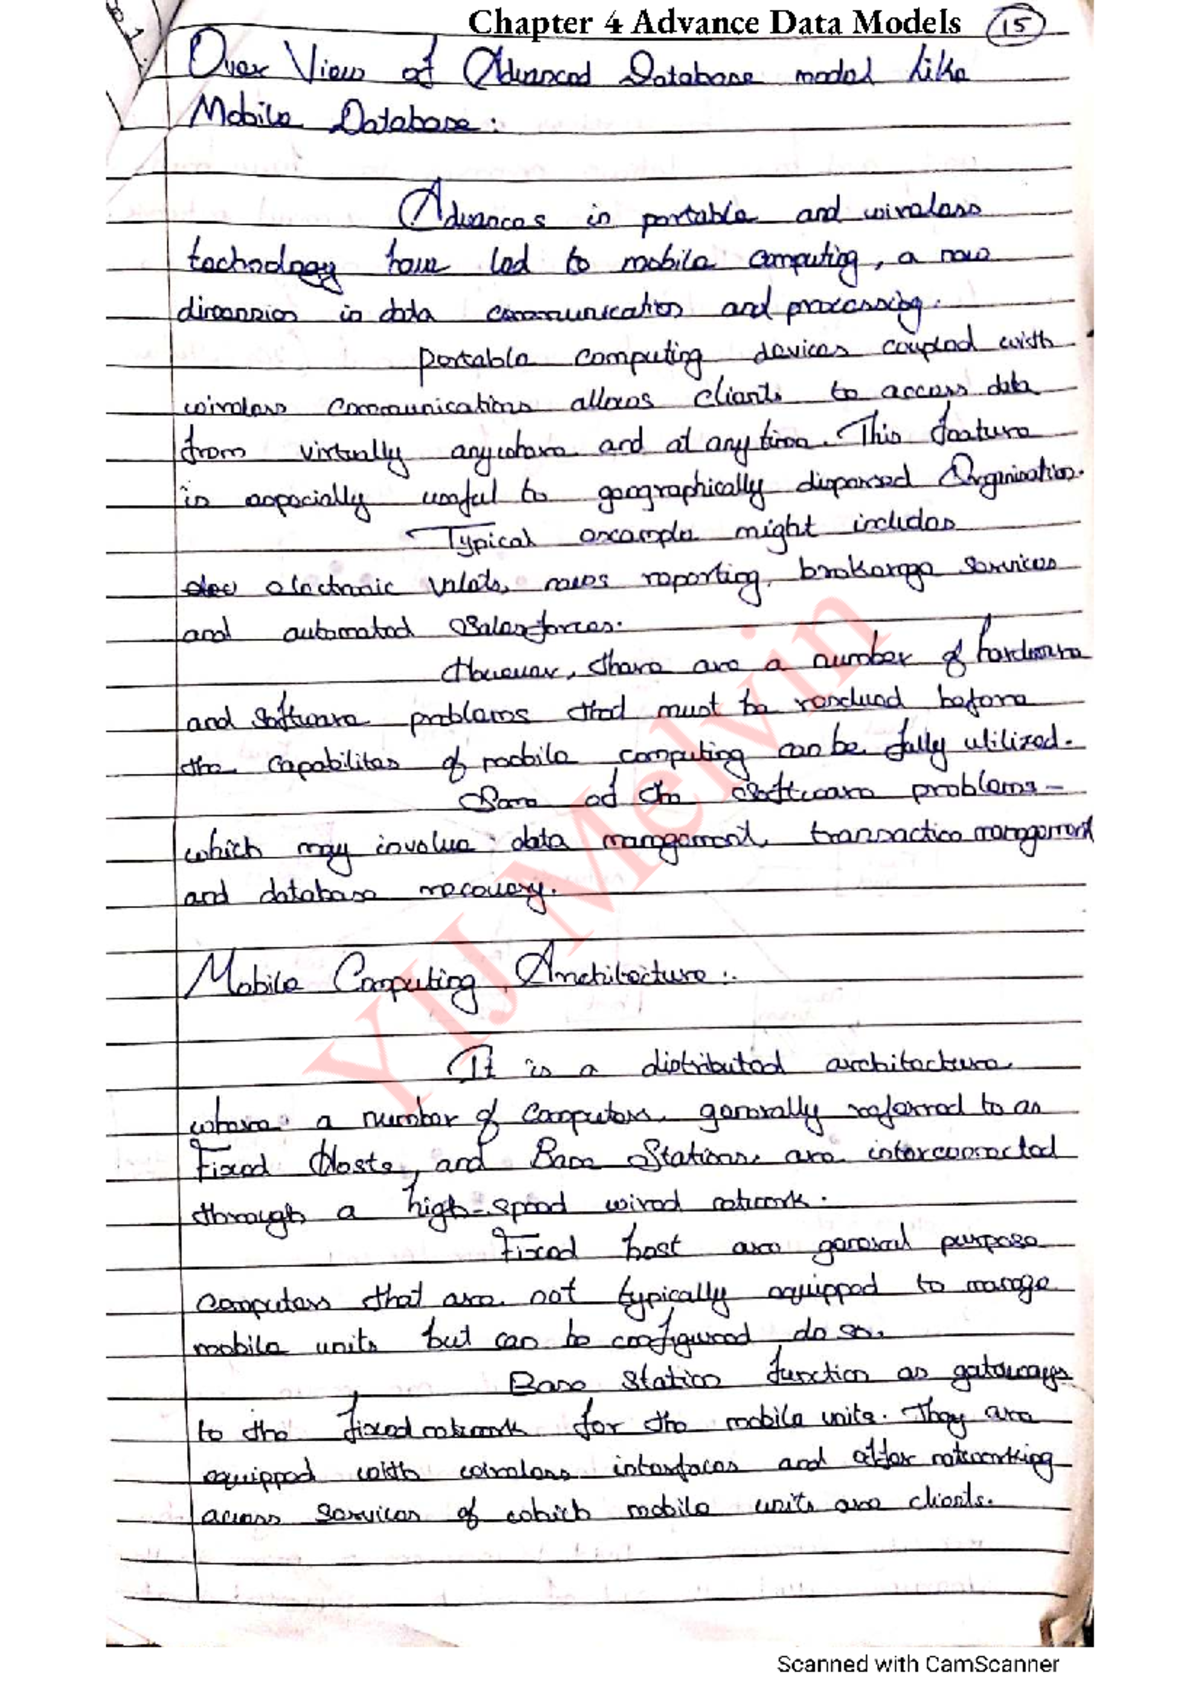 Chapter 4 Advance Data Models 15
Over View of Advanced Database model like
Mobile Database:
Advances in portable and wireless
technology have led to mobile computing, a new
dimension in data communication and processing.
Portable computing devices coupled with
wireless communications allows clients to access data
from virtually anywhere and at any time. This feature
is especially useful to geographically dispersed Organisation.
Typical example might includes
elec electronic valets, news reporting, brokerage services
and automated Sales forces.
However, there are a number of hardware
and Software problems that must be resolved before
the capabilites of mobile computing can be fully utilized.
Some of the Software problems -
which may involve data management, transaction management
and database recovery.
Mobile Computing Architecture:
It is a distributed architecture
where a number of Computers, generally referred to as
Fixed Hosts, and Base Stations are interconnected
through a high-speed wired network.
Fixed host are general purpose
computers that are not typically equipped to manage
mobile units but can be configured do so.
Base Station function as gateways
to the fixed network for the mobile units. They are
equipped with wireless interfaces and offer networking
access services of which mobile units are clients.
YIJ Melvin
Scanned with CamScanner